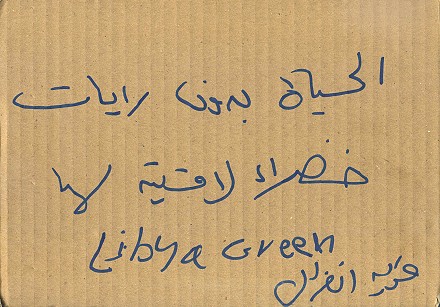 الحياة بدون رايات
خضراء لا قيمة لها
Libya Green